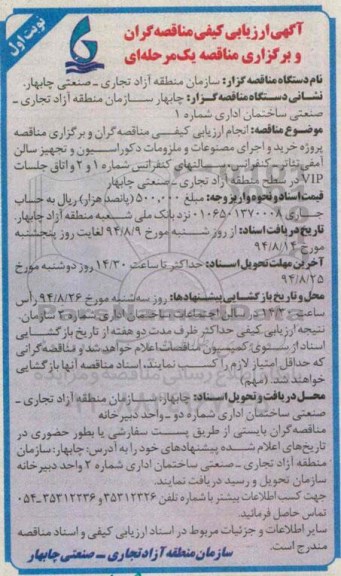 نوبت اول
آگهی ارزیابی کیفی مناقصه گران
و برگزاری مناقصه یک مرحله‌ای
نام دستگاه مناقصه گزار: سازمان منطقه آزاد تجاری ـ صنعتی چابهار.
نشانی دستگاه مناقصه گزار: چابهار سازمان منطقه آزاد تجاری ـ
صنعتی ساختمان اداری شماره ۱
موضوع مناقصه: انجام ارزیابی کیفی مناقصه گران و برگزاری مناقصه
پروژه خرید و اجرای مصنوعات و ملزومات دکوراسیون و تجهیز سالن
آمفی تئاتر ـ کنفرانس، سالنهای کنفرانس شماره ۱ و ۲ و اتاق جلسات
VIP در سطح منطقه آزاد تجاری ـ صنعتی چابهار
قیمت اسناد و نحوه واریز وجه: مبلغ ۵۰۰,۰۰۰ (پانصد هزار) ریال به حساب
جاری ۰۱۰۶۵۰۱۳۷۰۰۰۸ نزد بانک ملی شعبه منطقه آزاد چابهار.
تاریخ دریافت اسناد: از روز شنبه مورخ ۹۴/۸/۹ لغایت روز پنجشنبه
مورخ ۹۴/۸/۱۴
آخرین مهلت تحویل اسناد: حداکثر تا ساعت ۱۴/۳۰ روز دوشنبه مورخ
۹۴/۸/۲۵
محل و تاریخ بازگشایی پیشنهادها: روز سه شنبه مورخ ۹۴/۸/۲۶ رأس
ساعت سالن اجتماعات ساختمان اداری شماره سازمان.
نتیجه ارزیابی کیفی حداکثر ظرف مدت دو هفته از تاریخ بازگشایی
اسناد از سوی کمیسیون مناقصات اعلام خواهد شد و مناقصه گرانی
که حداقل امتیاز لازم را کسب نمایند، اسناد مناقصه آنها بازگشایی
خواهند شد. (مهم)
محل دریافت و تحویل اسناد: چابهار، سازمان منطقه آزاد تجاری ـ
صنعتی ساختمان اداری شماره دو ـ واحد دبیرخانه
مناقصه گران بایستی از طریق پست سفارشی یا بطور حضوری در
تاریخ‌های اعلام شده پیشنهادهای خود را به آدرس: چابهار: سازمان
منطقه آزاد تجاری ـ صنعتی ساختمان اداری شماره ۲ واحد دبیرخانه
سازمان تحویل و رسید دریافت نمایند.
جهت کسب اطلاعات بیشتر با شماره تلفن ۳۵۳۱۲۳۲۶ و ۳۵۳۱۲۲۳۶-۰۵۴
تماس حاصل فرمائید.
سایر اطلاعات و جزئیات مربوط در اسناد ارزیابی کیفی و اسناد مناقصه
مندرج است.
سازمان منطقه آزاد تجاری ـ صنعتی چابهار